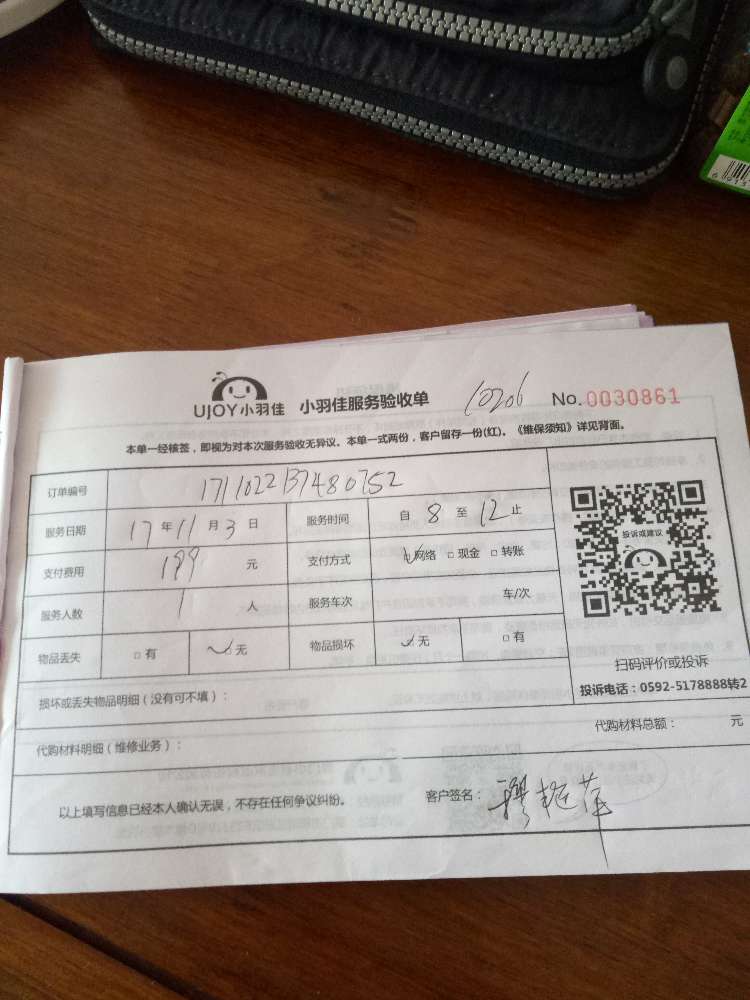 UJOY小羽佳 小羽佳服务验收单 10206 No.0030861
本单一经核签，即视为对本次服务验收无异议。本单一式两份，客户留存一份(红)。《维保须知》详见背面。
订单编号 1711022137480752
服务日期 17年11月3日 服务时间 自8至12止
支付费用 199元 支付方式 ☑网络 □现金 □转账
服务人数 1人 服务车次 车/次
物品丢失 □有 ☑无 物品损坏 ☑无 □有
投诉或建议
扫码评价或投诉
投诉电话：0592-5178888转2
损坏或丢失物品明细（没有可不填）：
代购材料明细（维修业务）： 代购材料总额： 元
以上填写信息已经本人确认无误，不存在任何争议纠纷。 客户签名：